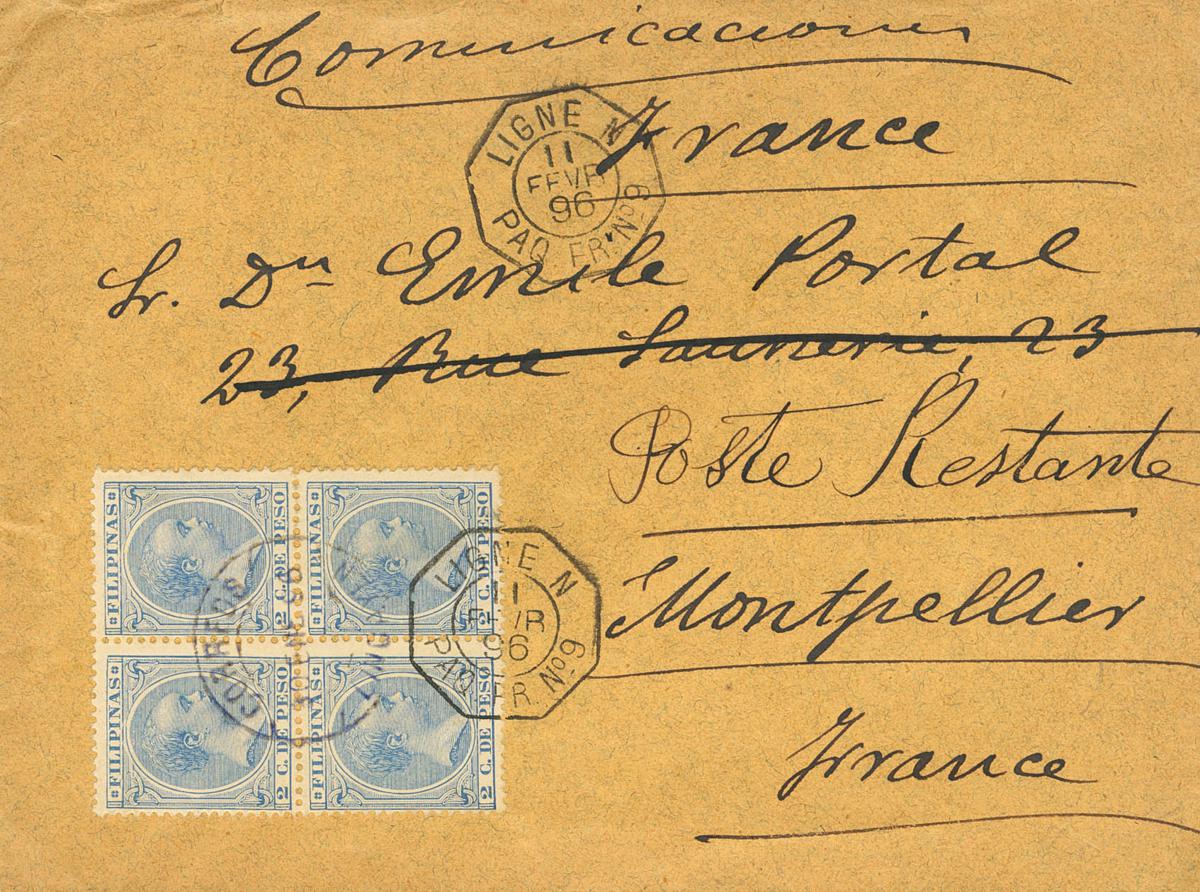 Comunicaciones
France
LIGNE N
11
FEVR
96
PAQ FR. Nº 9
Sr. Dn Emile Portal
23, Rue Saunerie, 23
Poste Restante
Montpellier
France
FILIPINAS
2 C. DE PESO
FILIPINAS
2 C. DE PESO
FILIPINAS
2 C. DE PESO
FILIPINAS
2 C. DE PESO
CORREOS
LIGNE N
11
FEVR
96
PAQ FR Nº 9